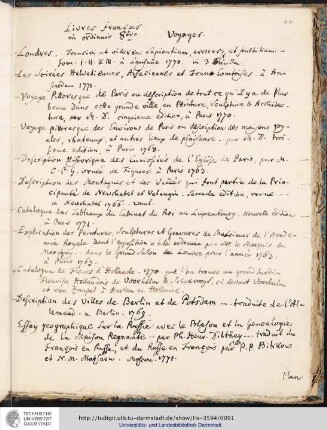 44
Livres françois
in ordinair 8tvo Voyages.
Londres. Transivi ut viderem Sapientiam, errores, et stultitiam.
Tom. I. II. III. à Lausanne 1770. in 3 Bänden.
Les Soirées Helvetiennes, Alsaciennes et Franc-Comtoises. à Am-
sterdam 1771.
Voyage Pitoresque de Paris ou description de tout ce qu'il y a de plus
beau dans cette grande ville en Peinture, Sculpture & Architec-
ture, par M. D. cinquieme édition, à Paris 1770.
Voyage pitoresque des Environs de Paris ou description des maisons roy-
ales, chateaux et autres lieux de plaisance. par M. D. troi-
sieme edition, à Paris 1768.
Description Historique des Curiosités de l'Eglise de Paris, par M.
C. P. G. ornée de Figures à Paris 1763.
Description des Montagnes et des Vallées qui font partie de la Prin-
cipauté de Neuchatel et Valangin. Seconde edition, revue
à Neuchatel 1766.
Catalogue des Tableaux du Cabinet du Roi au Luxembourg. Nouvelle édition
à Paris 1771.
Explication des Peintures, Sculptures et Gravures de Messieurs de l'Acade-
mie Royale. dont l'exposition a été ordonnée par M. le Marquis de
Marigny. dans le grand Salon du Louvre pour l'année 1763.
à Paris 1763.
Catalogue de Fleurs d'Hollande. 1770. que l'on trouve au grand Jardin
Fleuriste Hollandois de Voorhelm & Schneevogt, ci devant Voorhelm
et van Zompel à Harlem en Hollande.
Description des Villes de Berlin et de Potsdam. traduite de l'Al-
lemand. à Berlin. 1769.
Essay geographique sur la Russie avec le Blason et la Genealogie
de la Maison Regnante. par Ph. Henr. Dilthey. traduit du
François en Russe, et du Russe en François par P. P. Bibikow
et N. M. Matsnew. Moscou. 1771.
TECHNISCHE
UNIVERSITÄT
DARMSTADT
http://tudigit.ulb.tu-darmstadt.de/show/Hs-3594/0091
Universitäts- und Landesbibliothek Darmstadt